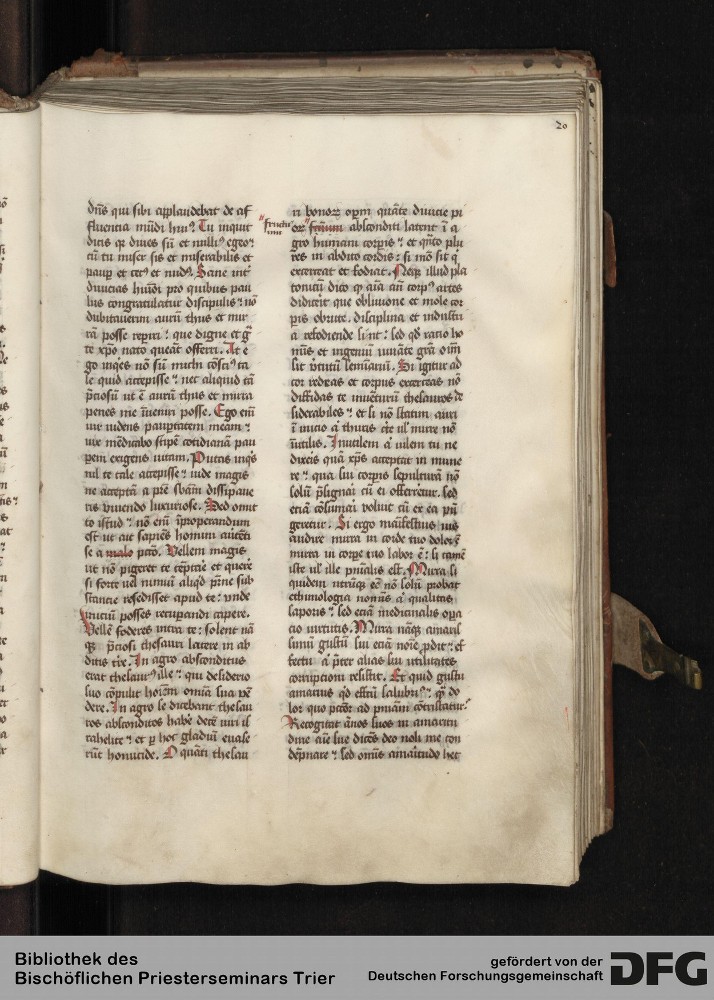 20
dn̄s qui sibi applaudebat de af
fluentia mūdi huiꝰ. Tu inquit
dicis qꝛ diues sū et nulliꝰ egeo
cū tu miser sis et miserabilis et
paup et cecꝰ et nudꝰ. Sane int̄
diuicias huiōi pro quibus pau
libus congratulatur discipulis nō
dubitauerim aurū thus et mir
rā posse repiri que digne et gͣ
te xp̄o nato queāt offerri. At e
go inq̄es nō sū michi cōsciꝰ ta
le quid accepisse nec aliquid tā
p̄ciosū ut ē aurū thus et mirra
penes me īueniri posse. Ego eni
uir uidens paup̄tatem meam
uir mēdicabo stipē cotidianā pau
pem exigens uitam. Putas inq̄s
nil te tale accepisse uide magis
ne acceptā a p̄re sb̄am dissipaue
ris uiuendo luxuriose. Sed omit
to istud nō eni īproperandum
est ut ait sapiēs homini auertēti
se a malo pctō. Vellem magis
ut nō pigeret te
si forte uel nimia aliqd pene sub
stancie resedisset apud te unde
uiuciū posses recupandi capere.
Vellē foderes intra te solent nā
qꝫ p̄ciosi thesauri latere in ab
ditis tue. In agro absconditus
erat thesaurꝰ ille qui desiderio
suo cōpulit hoīem omīa sua vē
dere. In agro se dicebant thesau
ros absconditos habē decē uiri il
rahelite et p hoc gladiū euase
rūt homicide. O quāti thesau
fructu
ri bonoꝝ opm quāte diuicie pi
absconditi latent ī a
gro humani corpis et qnto plu
res in abdito cordis si mō sit q
exerceat et fodiat. Neqꝫ illud pla
tonicū dico qꝛ aīa an̄ corpꝰ artes
didicit que obliuione et mole cor
pis obrute disciplina et industri
a refodiende sint sed qd racio ho
mīs et ingeniū iuuāte grā om̄i
sit v̄tutū seminariū. Si igitur ad
cor redeas et corpus exerceas nō
diffidas te inuēturū thesauros de
siderabiles et si nō statim auri
ī inicio a thuris
inutilis. Inutilem a uilem tu ne
dixeis quā xp̄s acceptat in mune
re qua sui corpis sepulturā nō
solū p̄signari cū ei offerretur sed
etiā cōsumari voluit cū ex ea pū
geretur. Si ergo maifestius uis
audire mirra in corde tuo dolorē
mirra in corpe tuo labor ē si tamē
iste ul ille pnīalis est. Mirra si
quidem utrūqꝫ eē nō solū probat
ethimologia nomīs a qualitas
saporis sed etiā medicinalis opa
cio uirtutis. Mirra nāqꝫ amaris
simū gustū sui etiā noīe pdit ef
fectu a p̄ter alias sui utilitates
corrupcioni resistit. Et quid gustu
amarius qd effcū salubriꝰ qͣ do
lor quo pctōr ad pniam cōtristatur
Recogitat ānos suos in amaritu
dine aīe sue dicēs deo noli me con
dēpnare sed omīs amaritudo hec
Bibliothek des
Bischöflichen Priesterseminars Trier
gefördert von der
Deutschen Forschungsgemeinschaft
DFG